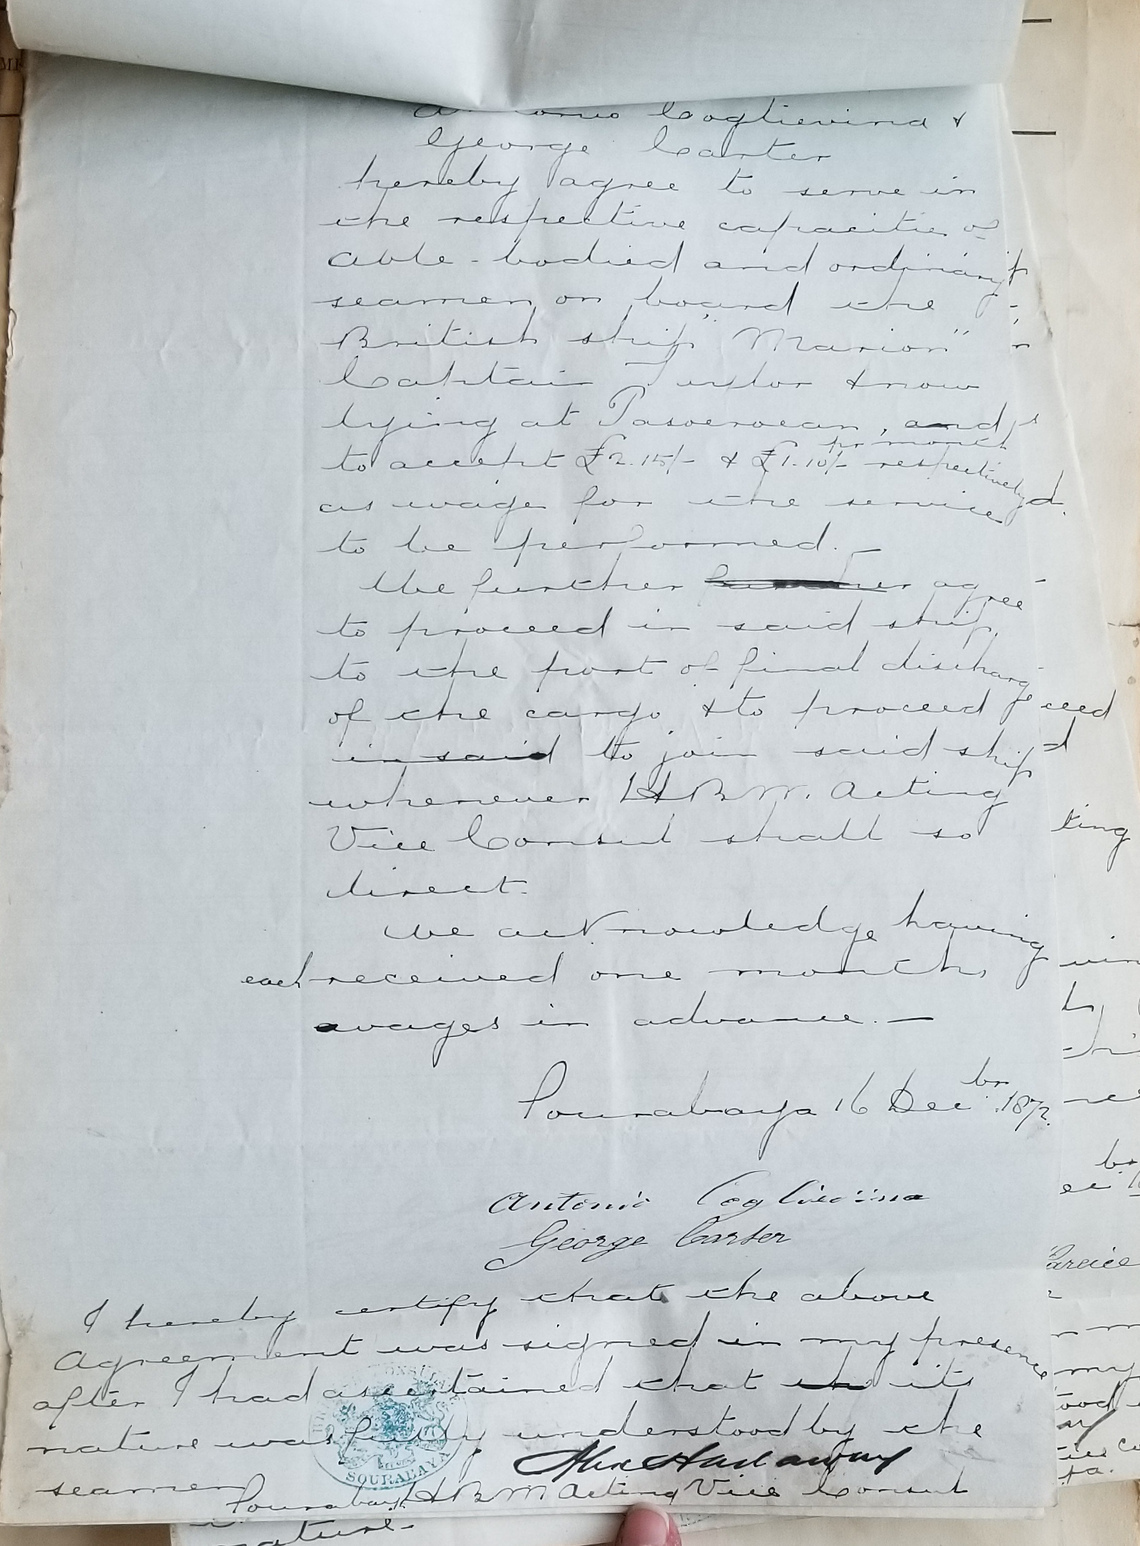 Antonio Coglievina &
George Carter
hereby agree to serve in
the respective capacities of
able-bodied and ordinary
seamen on board the
British ship "Marion"
Captain Taylor & now
lying at Pasoeroean, and
to accept £2.15/- & £1.10/- per month respectively
as wage for the service
to be performed. —
We further further agree
to proceed in said ship
to the port of final discharge
of the cargo & to proceed
in said to join said ship
whenever H.B.M. Acting
Vice Consul shall so
direct.
We acknowledge having
each received one months
wages in advance. —
Sourabaya 16 Decbr. 1872.
Antonio Coglievina
George Carter
I hereby certify that the above
Agreement was signed in my presence
after I had ascertained that its
nature was fully understood by the
seamen
Alex Hadaway
Sourabaya H B M Acting Vice Consul
SOURABAYA
nature.